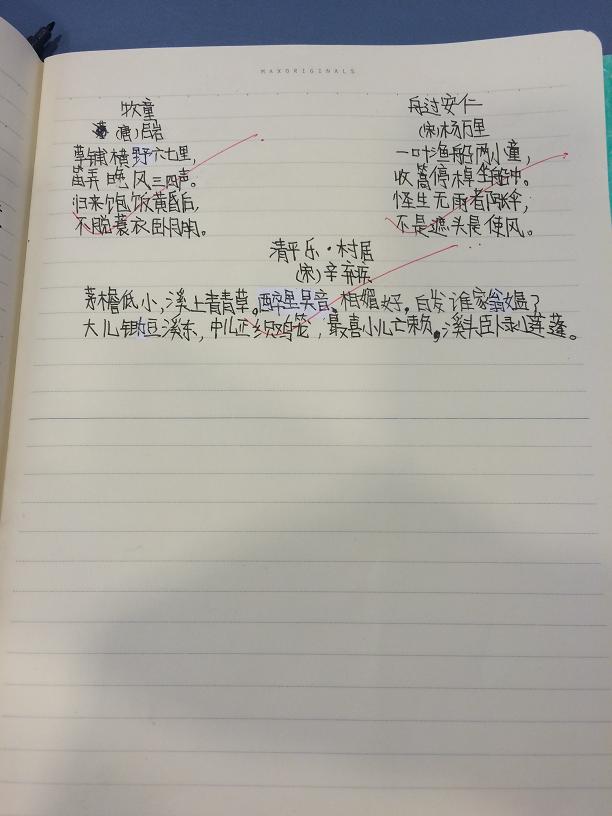 MAXORIGINALS
牧童
(唐)吕岩
草铺横野六七里，
笛弄晚风三四声。
归来饱饭黄昏后，
不脱蓑衣卧月明。
舟过安仁
(宋)杨万里
一叶渔船两小童，
收篙停棹坐船中。
怪生无雨都张伞，
不是遮头是使风。
清平乐·村居
(宋)辛弃疾
茅檐低小，溪上青青草。醉里吴音，相媚好，白发谁家翁媪？
大儿锄豆溪东，中儿正织鸡笼，最喜小儿亡赖，溪头卧剥莲蓬。